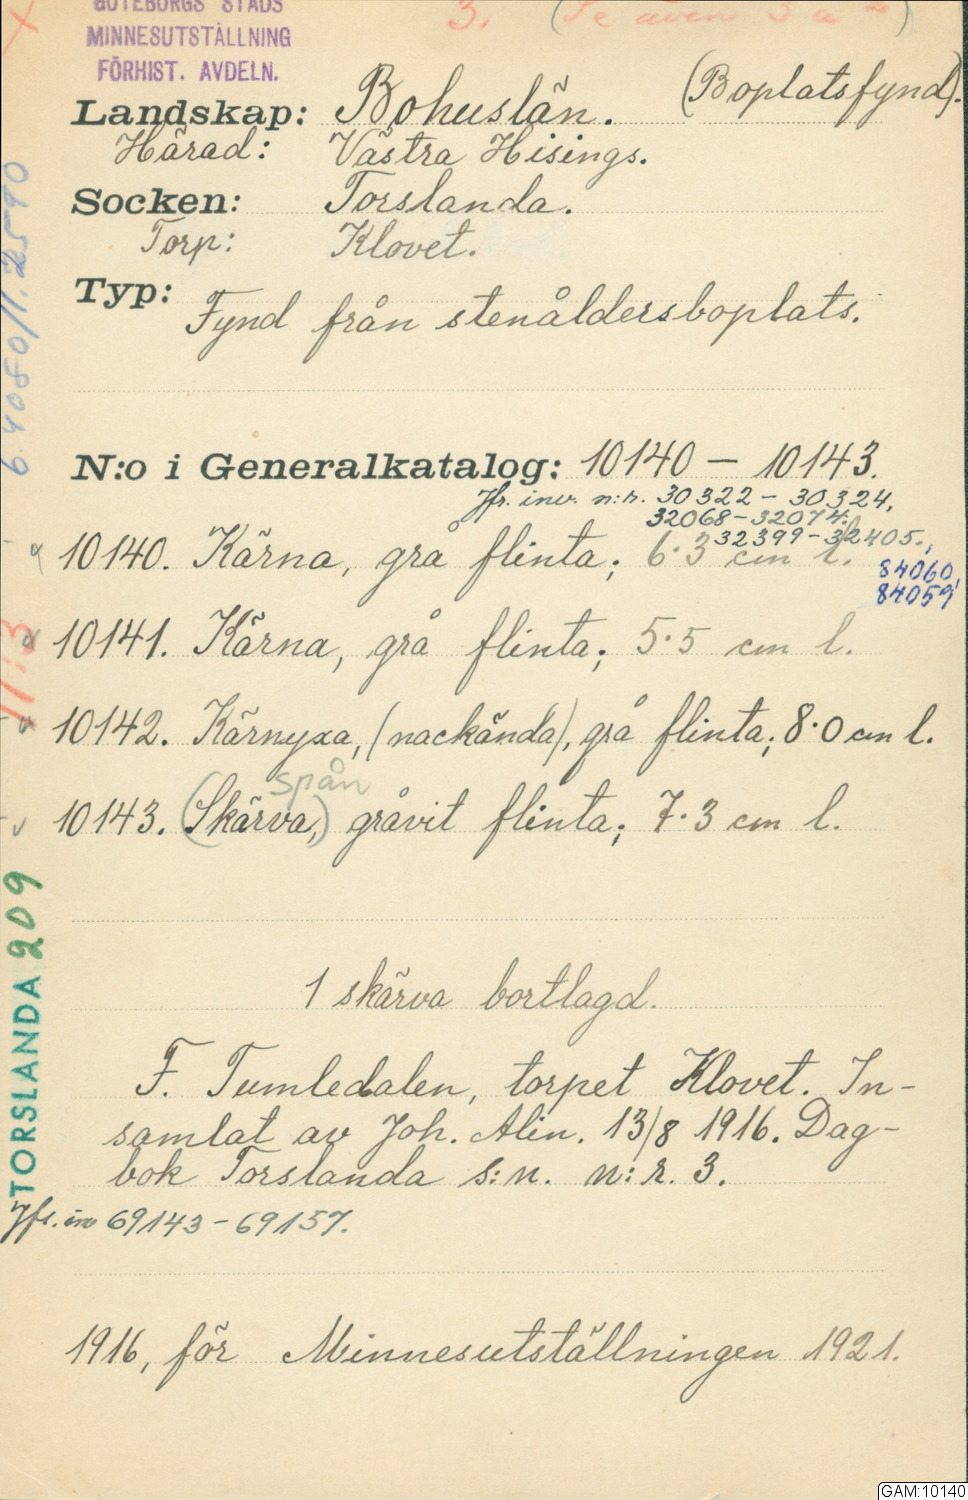 GÖTEBORGS STADS
MINNESUTSTÄLLNING
FÖRHIST. AVDELN.
3. (Se även 3 a )
Landskap: Bohuslän. (Boplatsfynd).
Härad: Västra Hisings.
Socken: Torslanda.
Torp: Klovet.
Typ: Fynd från stenåldersboplats.
N:o i Generalkatalog: 10140 – 10143.
Jfr. inv. n:r. 30322 – 30324,
32068–32074.
32399–32405.,
10140. Kärna, grå flinta; 6.3 cm l.
84060,
84059
10141. Kärna, grå flinta; 5.5 cm l.
10142. Kärnyxa, (nackända), grå flinta; 8.0 cm l.
spån
10143. (Skärva,) gråvit flinta; 7.3 cm l.
1 skärva bortlagd.
F. Tumledalen, torpet Klovet. In-
samlat av Joh. Alin. 13/8 1916. Dag-
bok Torslanda s:n. n:r. 3.
Jfr. inv 69143 – 69157.
1916, för Minnesutställningen 1921.
TORSLANDA 209
11:3
GAM:10140